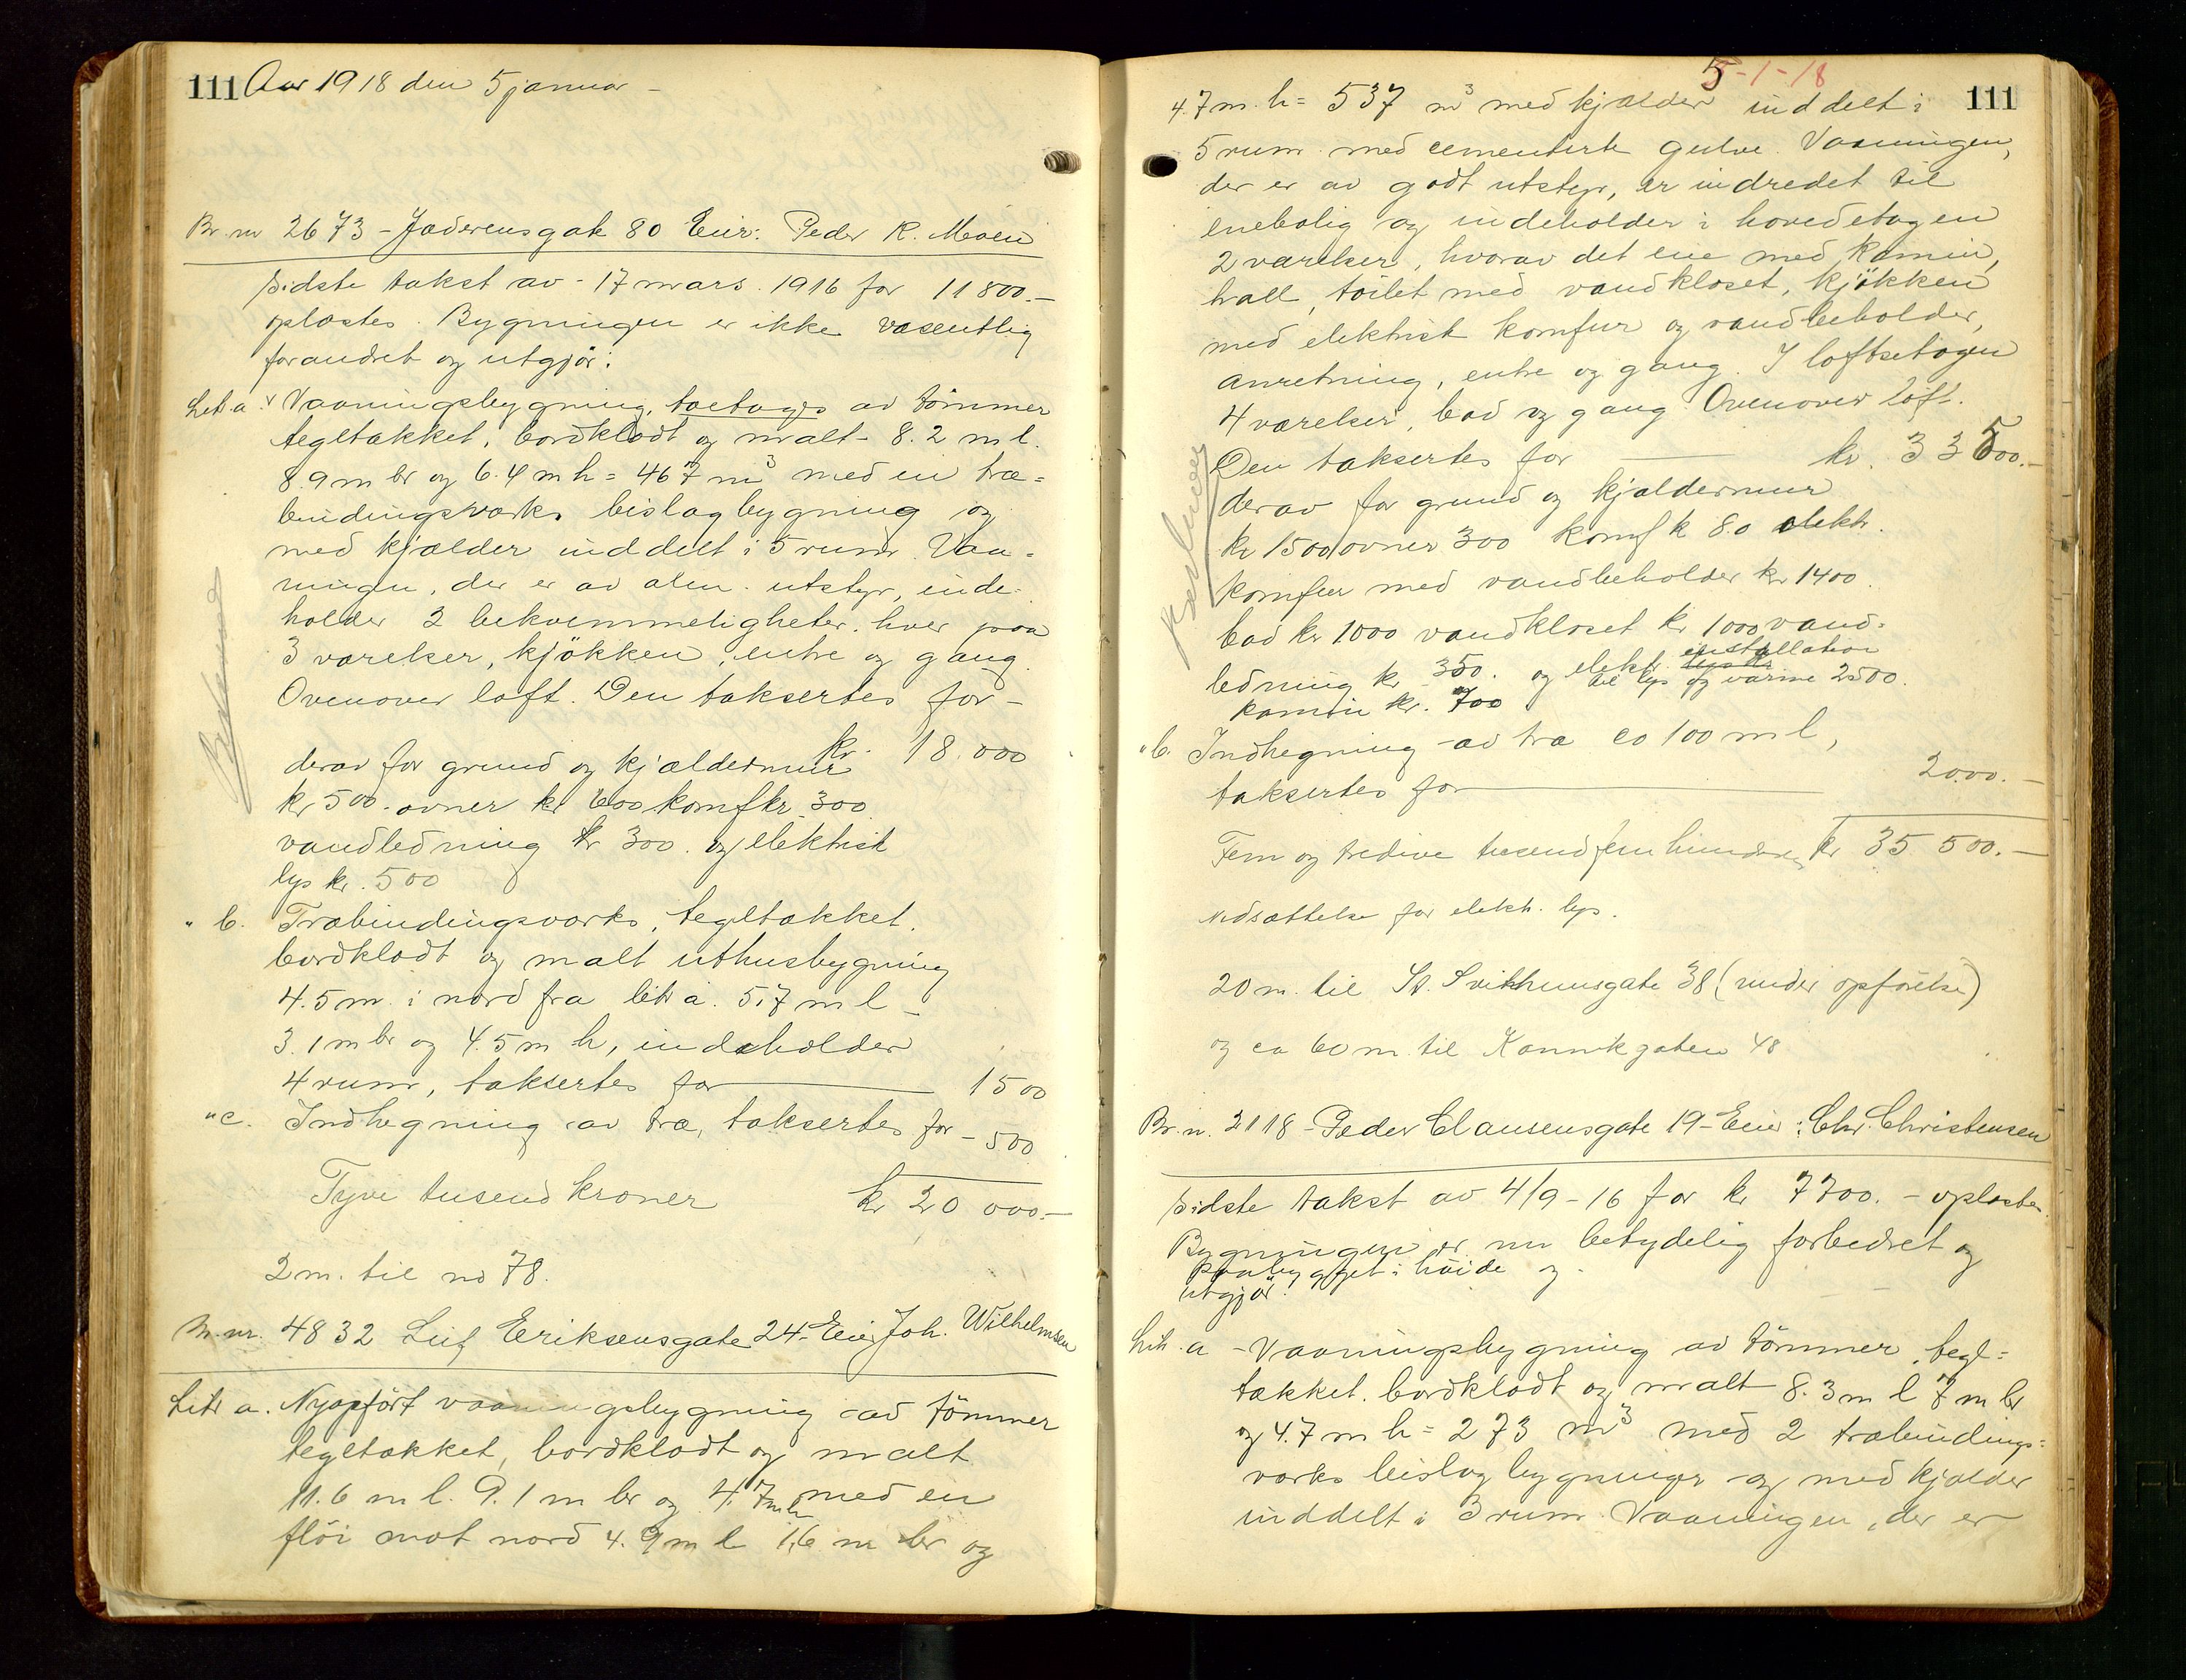 111 Aar 1918 den 5 januar -
Br. nr 2673 - Jæderensgate 80 Eier: Peder R. Moen
Sidste takst av - 17 mars. 1916 for 11800.-
oplæstes. Bygningen er ikke væsentlig
forandret og utgjör:
Litr a. Vaaningsbygning, toetages av tömmer
tegltækket, bordklædt og malt - 8.2 m l.
8.9 m br og 6.4 m h = 467 m³ med en træ=
bindingsverks bislagbygning og
med kjælder inddelt i 5 rum. Vaa-
ningen, der er av alm. utstyr, inde-
holder 2 bekvemmeligheter. hver paa
3 værelser, kjökken, entre og gang.
Ovenover loft. Den taksertes for -
kr. 18.000
derav for grund og kjældermur
kr 500. ovner kr 600 komf kr 300
vandledning kr 300. og elektrisk
lys kr. 500
" b. Træbindingsverks, tegltækket,
bordklædt og malt uthusbygning
4.5 m i nord fra litr a. 5.7 m l -
3.1 m br og 4.5 m h, indeholder
4 rum, taksertes for 1500
" c. Indhegning av træ, taksertes for - 500
Tyve tusend kroner kr 20 000.-
2 m. til no 78.
M.nr. 4832 Leif Eriksensgate 24 - Eier Joh. Wilhelmsen
Litr a. Nyopfört vaaningsbygning av tömmer
tegltækket, bordklædt og malt
11.6 m l. 9.1 m br og 4.7 m h med en
flöi mot nord 4.9 m l 1.6 m br og
5-1-18
111
4.7 m. h = 537 m³ med kjælder inddelt i
5 rum med cementerte gulve. Vaaningen,
der er av godt utstyr, er indredet til
enebolig og indeholder i hovedetagen
2 værelser, hvorav det ene med kamin,
hall, toilet med vandkloset, kjökken
med elektrisk komfur og vandbeholder,
anretning, entre og gang. I loftsetagen
4 værelser, bad og gang. Ovenover loft.
Den taksertes for kr. 33500.-
derav for grund og kjældermur
kr 1500 ovner 300 komf k 80 elektr.
komfur med vandbeholder kr 1400
bad kr 1000 vandkloset kr 1000 vand-
installation
ledning kr 350. og elektr. til lys og varme 2500.
kamin kr. 700
" b. Indhegning - av træ ca 100 m l,
taksertes for 2000.-
Fem og tredive tusend fem hundrede kr 35 500.-
Nedsættelse for elektr. lys.
20 m. til St. Svithunsgate 38 (under opförelse)
og ca 60 m til Kannikgaten 48
Br. n. 2118 - Peder Clausensgate 19 - Eier: Chr. Christensen
Sidste takst av 4/9 - 16 for kr 7700. - oplæstes.
Bygningen er nu betydelig forbedret og
paabygget i höide og
utgjör:
Litr. a - Vaaningsbygning av tömmer, tegl=
tækket, bordklædt og malt 8.3 m l 7 m br
og 4.7 m h = 273 m³ med 2 træbindings=
værks bislagbygninger og med kjælder
inddelt i 3 rum. Vaaningen, der er